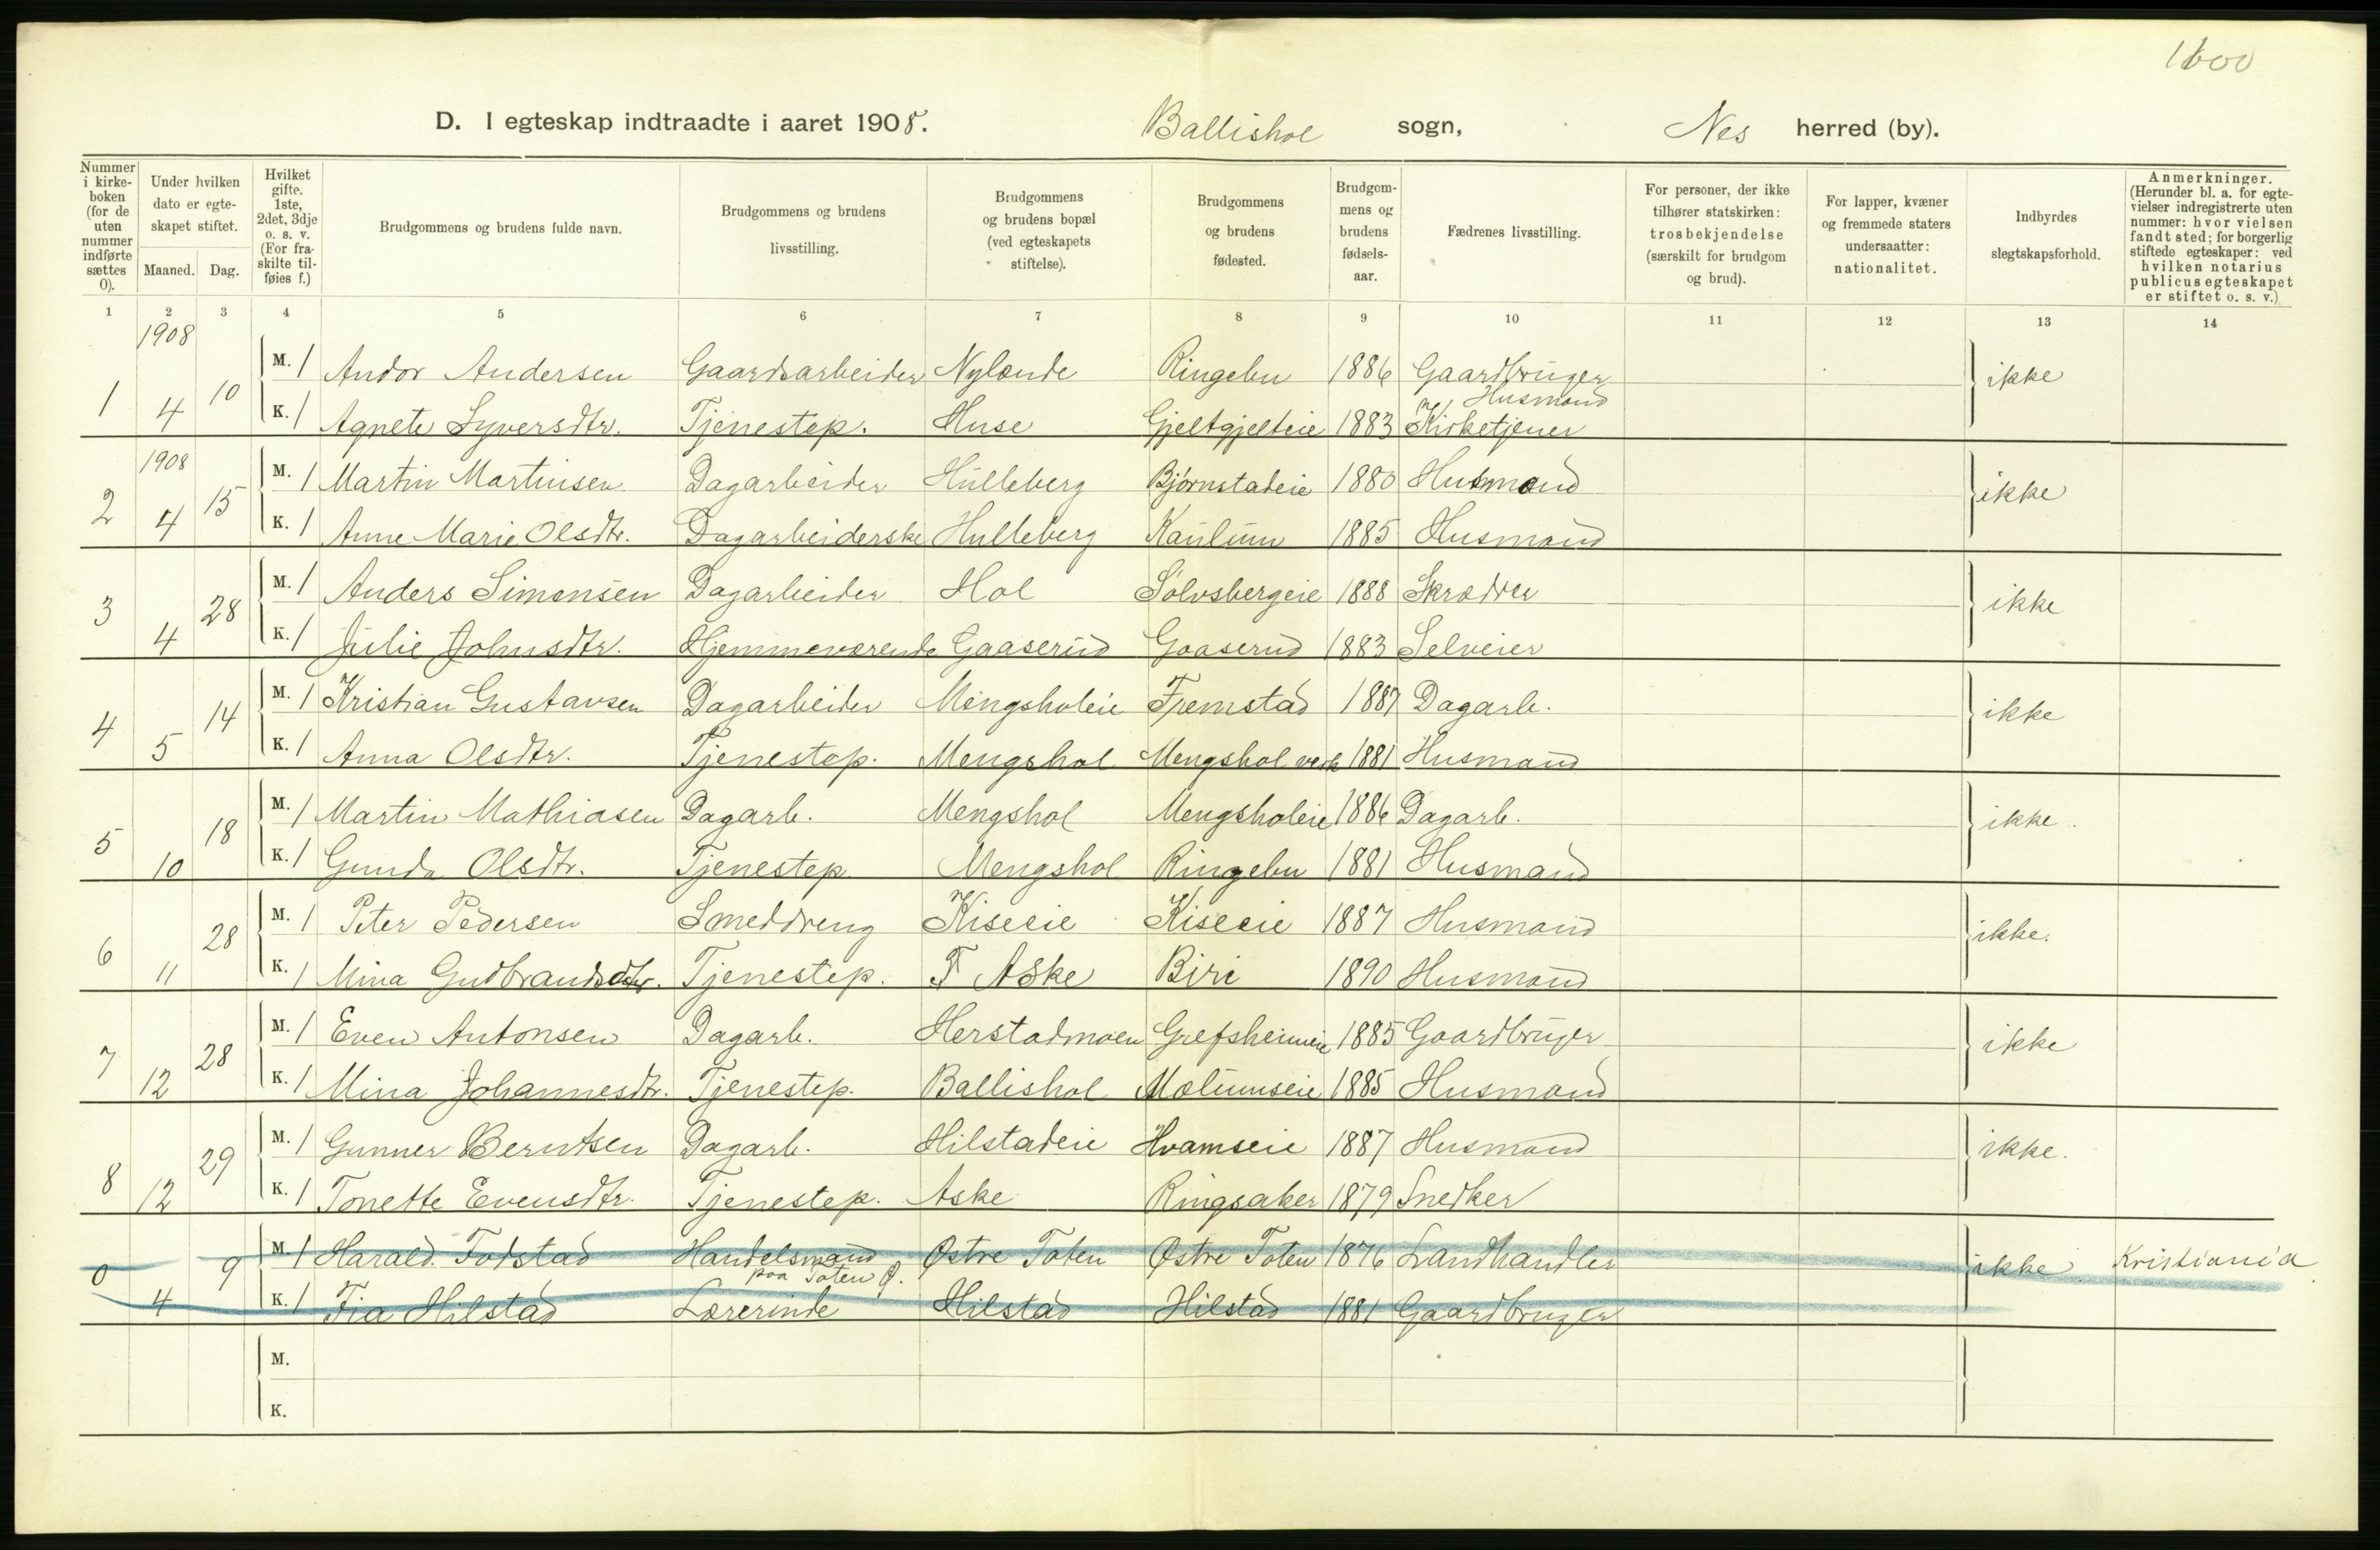 1600
D. I egteskap indtraadte i aaret 1908. Ballishol sogn, Nes herred (by).
Nummer i kirke-boken (for de uten nummer indførte sættes 0).
Under hvilken dato er egte-skapet stiftet.
Maaned. Dag.
Hvilket gifte. 1ste, 2det, 3dje o. s. v. (For fra-skilte til-føies f.)
Brudgommens og brudens fulde navn.
Brudgommens og brudens livsstilling.
Brudgommens og brudens bopæl (ved egteskapets stiftelse).
Brudgommens og brudens fødested.
Brudgom-mens og brudens fødsels-aar.
Fædrenes livsstilling.
For personer, der ikke tilhører statskirken: trosbekjendelse (særskilt for brudgom og brud).
For lapper, kvæner og fremmede staters undersaatter: nationalitet.
Indbyrdes slegtskapsforhold.
Anmerkninger. (Herunder bl. a. for egte-vielser indregistrerte uten nummer: hvor vielsen fandt sted; for borgerlig stiftede egteskaper: ved hvilken notarius publicus egteskapet er stiftet o. s. v.)
1 2 3 4 5 6 7 8 9 10 11 12 13 14
1908
1 4 10 M. 1 Andor Andersen Gaardsarbeider Nylænde Ringebu 1886 Gaardbruger ikke
Husmand
K. 1 Agnete Syversdtr. Tjenestep. Huse Gjeltgjelteie 1883 Kirketjener
1908
2 4 15 M. 1 Martin Martinsen Dagarbeider Hulleberg Bjørnstadeie 1880 Husmand ikke
K. 1 Anne Marie Olsdtr. Dagarbeiderske Hulleberg Kaulum 1885 Husmand
3 4 28 M. 1 Anders Simensen Dagarbeider Hol Sølvsbergeie 1888 Skrædder ikke
K. 1 Julie Johnsdtr. Hjemmeværende Gaaserud Gaaserud 1883 Selveier
4 5 14 M. 1 Kristian Gustavsen Dagarbeider Mengsholeie Fremstad 1887 Dagarb. ikke
K. 1 Anna Olsdtr. Tjenestep. Mengshol Mengshol 1881 Husmand
5 10 18 M. 1 Martin Mathiasen Dagarb. Mengshol Mengsholeie 1886 Dagarb. ikke.
K. 1 Gunda Olsdtr. Tjenestep. Mengshol Ringebu 1881 Husmand
6 11 28 M. 1 Peter Pedersen Smeddreng Kiseeie Kiseeie 1887 Husmand ikke.
K. 1 Mina Gudbrandsdtr. Tjenestep. Aske Biri 1890 Husmand
7 12 28 M. 1 Even Antonsen Dagarb. Herstadmoen Grefsheimeie 1885 Gaardbruger ikke
K. 1 Mina Johannesdtr. Tjenestep. Ballishol Mælumseie 1885 Husmand
8 12 29 M. 1 Gunner Berntsen Dagarb. Hilstadeie Hvamseie 1887 Husmand ikke.
K. 1 Tonette Evensdtr. Tjenestep. Aske Ringsaker 1879 Snedker
0 4 9 M. 1 Harald Fodstad Handelsmand Østre Toten Østre Toten 1876 Landhandler ikke. Kristiania.
paa Toten Ø.
K. 1 Fia Hilstad Lærerinde Hilstad Hilstad 1881 Gaardbruger
M.
K.